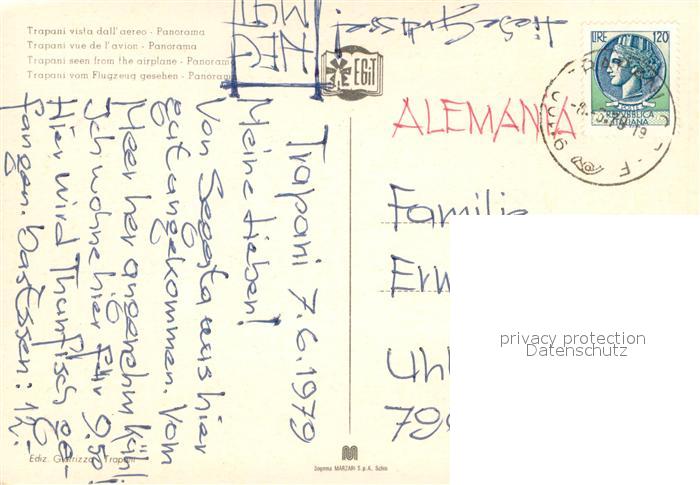 Trapani vista dall'aereo - Panorama
Trapani vue de l'avion - Panorama
Trapani seen from the airplane - Panorama
Trapani vom Flugzeug gesehen - Panorama
EGIT
LIRE 120
POSTE
REPUBBLICA
ITALIANA
ALEMANIA
Trapani 7.6.1979
Meine Lieben!
Von Segesta aus hier
gut angekommen. Vom
Meer her angenehm kühl!
Ich wohne hier für 9.50!
Hier wird Thunfisch ge-
fangen. Das Essen: 1A.-
Liebe Grüsse!
Familie
Uhl
79
privacy protection
Datenschutz
Ediz. Trapani
Zogema MARZARI S.p.A. Schio